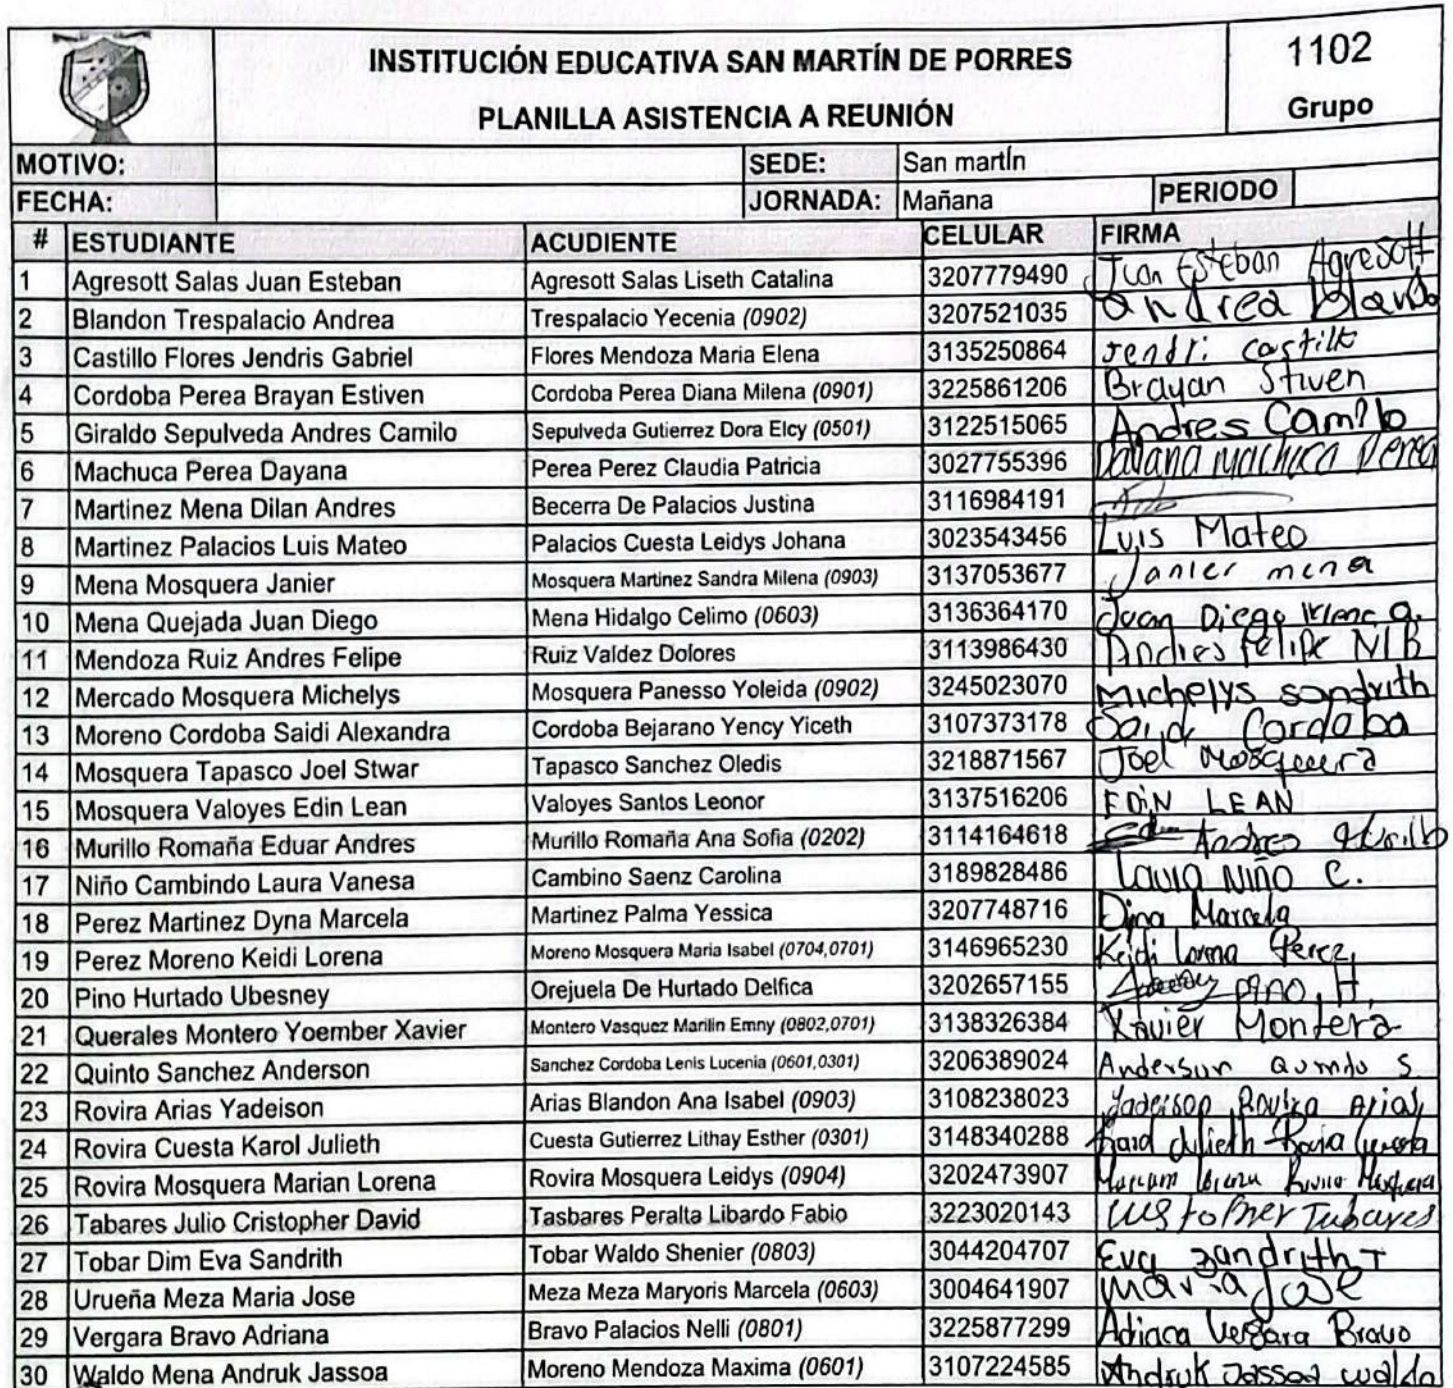 INSTITUCIÓN EDUCATIVA SAN MARTÍN DE PORRES
PLANILLA ASISTENCIA A REUNIÓN
1102
Grupo
MOTIVO: SEDE: San martín
FECHA: JORNADA: Mañana PERIODO
# ESTUDIANTE ACUDIENTE CELULAR FIRMA
1 Agresott Salas Juan Esteban Agresott Salas Liseth Catalina 3207779490 Juan Esteban Agresott
2 Blandon Trespalacio Andrea Trespalacio Yecenia (0902) 3207521035 andrea
3 Castillo Flores Jendris Gabriel Flores Mendoza Maria Elena 3135250864 Jendri castillo
4 Cordoba Perea Brayan Estiven Cordoba Perea Diana Milena (0901) 3225861206 Brayan Stiven
5 Giraldo Sepulveda Andres Camilo Sepulveda Gutierrez Dora Elcy (0501) 3122515065 Andres Camilo
6 Machuca Perea Dayana Perea Perez Claudia Patricia 3027755396 Dayana machuca Perea
7 Martinez Mena Dilan Andres Becerra De Palacios Justina 3116984191
8 Martinez Palacios Luis Mateo Palacios Cuesta Leidys Johana 3023543456 Luis Mateo
9 Mena Mosquera Janier Mosquera Martinez Sandra Milena (0903) 3137053677 Janier mena
10 Mena Quejada Juan Diego Mena Hidalgo Celimo (0603) 3136364170 Juan Diego Mena Q.
11 Mendoza Ruiz Andres Felipe Ruiz Valdez Dolores 3113986430 Andres felipe
12 Mercado Mosquera Michelys Mosquera Panesso Yoleida (0902) 3245023070 Michelys sandrith
13 Moreno Cordoba Saidi Alexandra Cordoba Bejarano Yency Yiceth 3107373178 Cordoba
14 Mosquera Tapasco Joel Stwar Tapasco Sanchez Oledis 3218871567 Joel Mosquera
15 Mosquera Valoyes Edin Lean Valoyes Santos Leonor 3137516206 EDiN LEAN
16 Murillo Romaña Eduar Andres Murillo Romaña Ana Sofia (0202) 3114164618 Andres Murillo
17 Niño Cambindo Laura Vanesa Cambino Saenz Carolina 3189828486 Laura Niño C.
18 Perez Martinez Dyna Marcela Martinez Palma Yessica 3207748716 Dina Marcela
19 Perez Moreno Keidi Lorena Moreno Mosquera Maria Isabel (0704,0701) 3146965230 Keidi Lorena Perez
20 Pino Hurtado Ubesney Orejuela De Hurtado Delfica 3202657155 pino, H.
21 Querales Montero Yoember Xavier Montero Vasquez Marilin Emny (0802,0701) 3138326384 Xavier Montero
22 Quinto Sanchez Anderson Sanchez Cordoba Lenis Lucenia (0601,0301) 3206389024 Anderson S
23 Rovira Arias Yadeison Arias Blandon Ana Isabel (0903) 3108238023 Yadeison Rovira Arias
24 Rovira Cuesta Karol Julieth Cuesta Gutierrez Lithay Esther (0301) 3148340288 Karol Julieth Rovira Cuesta
25 Rovira Mosquera Marian Lorena Rovira Mosquera Leidys (0904) 3202473907 Lorena Rovira Mosquera
26 Tabares Julio Cristopher David Tasbares Peralta Libardo Fabio 3223020143 Tabares
27 Tobar Dim Eva Sandrith Tobar Waldo Shenier (0803) 3044204707 Eva zandrith T
28 Urueña Meza Maria Jose Meza Meza Maryoris Marcela (0603) 3004641907 maria Jose
29 Vergara Bravo Adriana Bravo Palacios Nelli (0801) 3225877299 Adriana Vergara Bravo
30 Waldo Mena Andruk Jassoa Moreno Mendoza Maxima (0601) 3107224585 Andruk Jassoa waldo